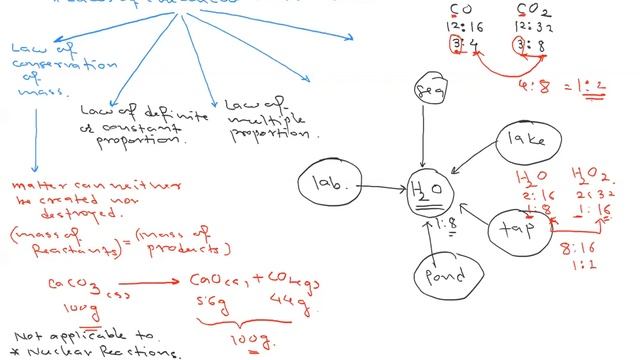 Law of
conservation
of
mass.
Law of definite
or constant
proportion.
Law of
multiple
proportion.
matter can neither
be created nor
destroyed.
(mass of Reactants) = (mass of products)
CaCO3(s) → CaO(s) + CO2(g)
100g 56g 44g
100g.
Not applicable to.
* Nuclear Reactions.
CO CO2
12:16 12:32
3:4 3:8
4:8 = 1:2
Sea
lake
lab.
H2O
1:8
tap
Pond
H2O H2O2
2:16 2:32
1:8 1:16
8:16